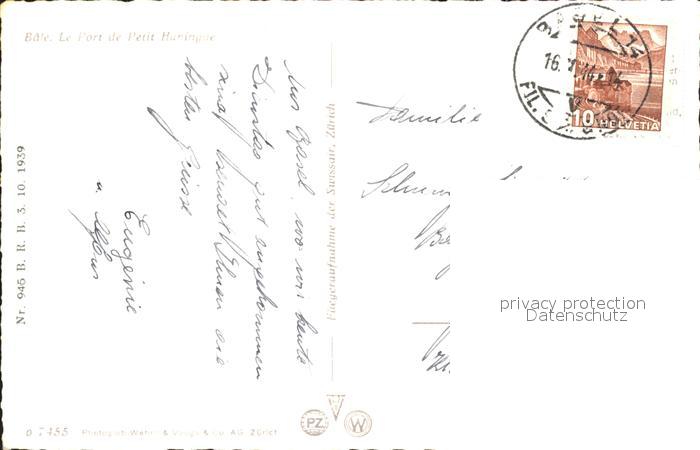 Bâle. Le Port de Petit Huningue
Aus Basel, wo wir heute
Dienstag gut angekommen
sind, sendet Ihnen die
besten Grüsse
Eugénie
u. Alfons
Nr. 946 B. R. B. 3. 10. 1939
Fliegeraufnahme der Swissair, Zürich
Familie
BASEL 14
16.
FIL.
10 HELVETIA
privacy protection
Datenschutz
PZ
W
D 7455 Photoglob-Wehrli & Vouga & Co. AG. Zürich